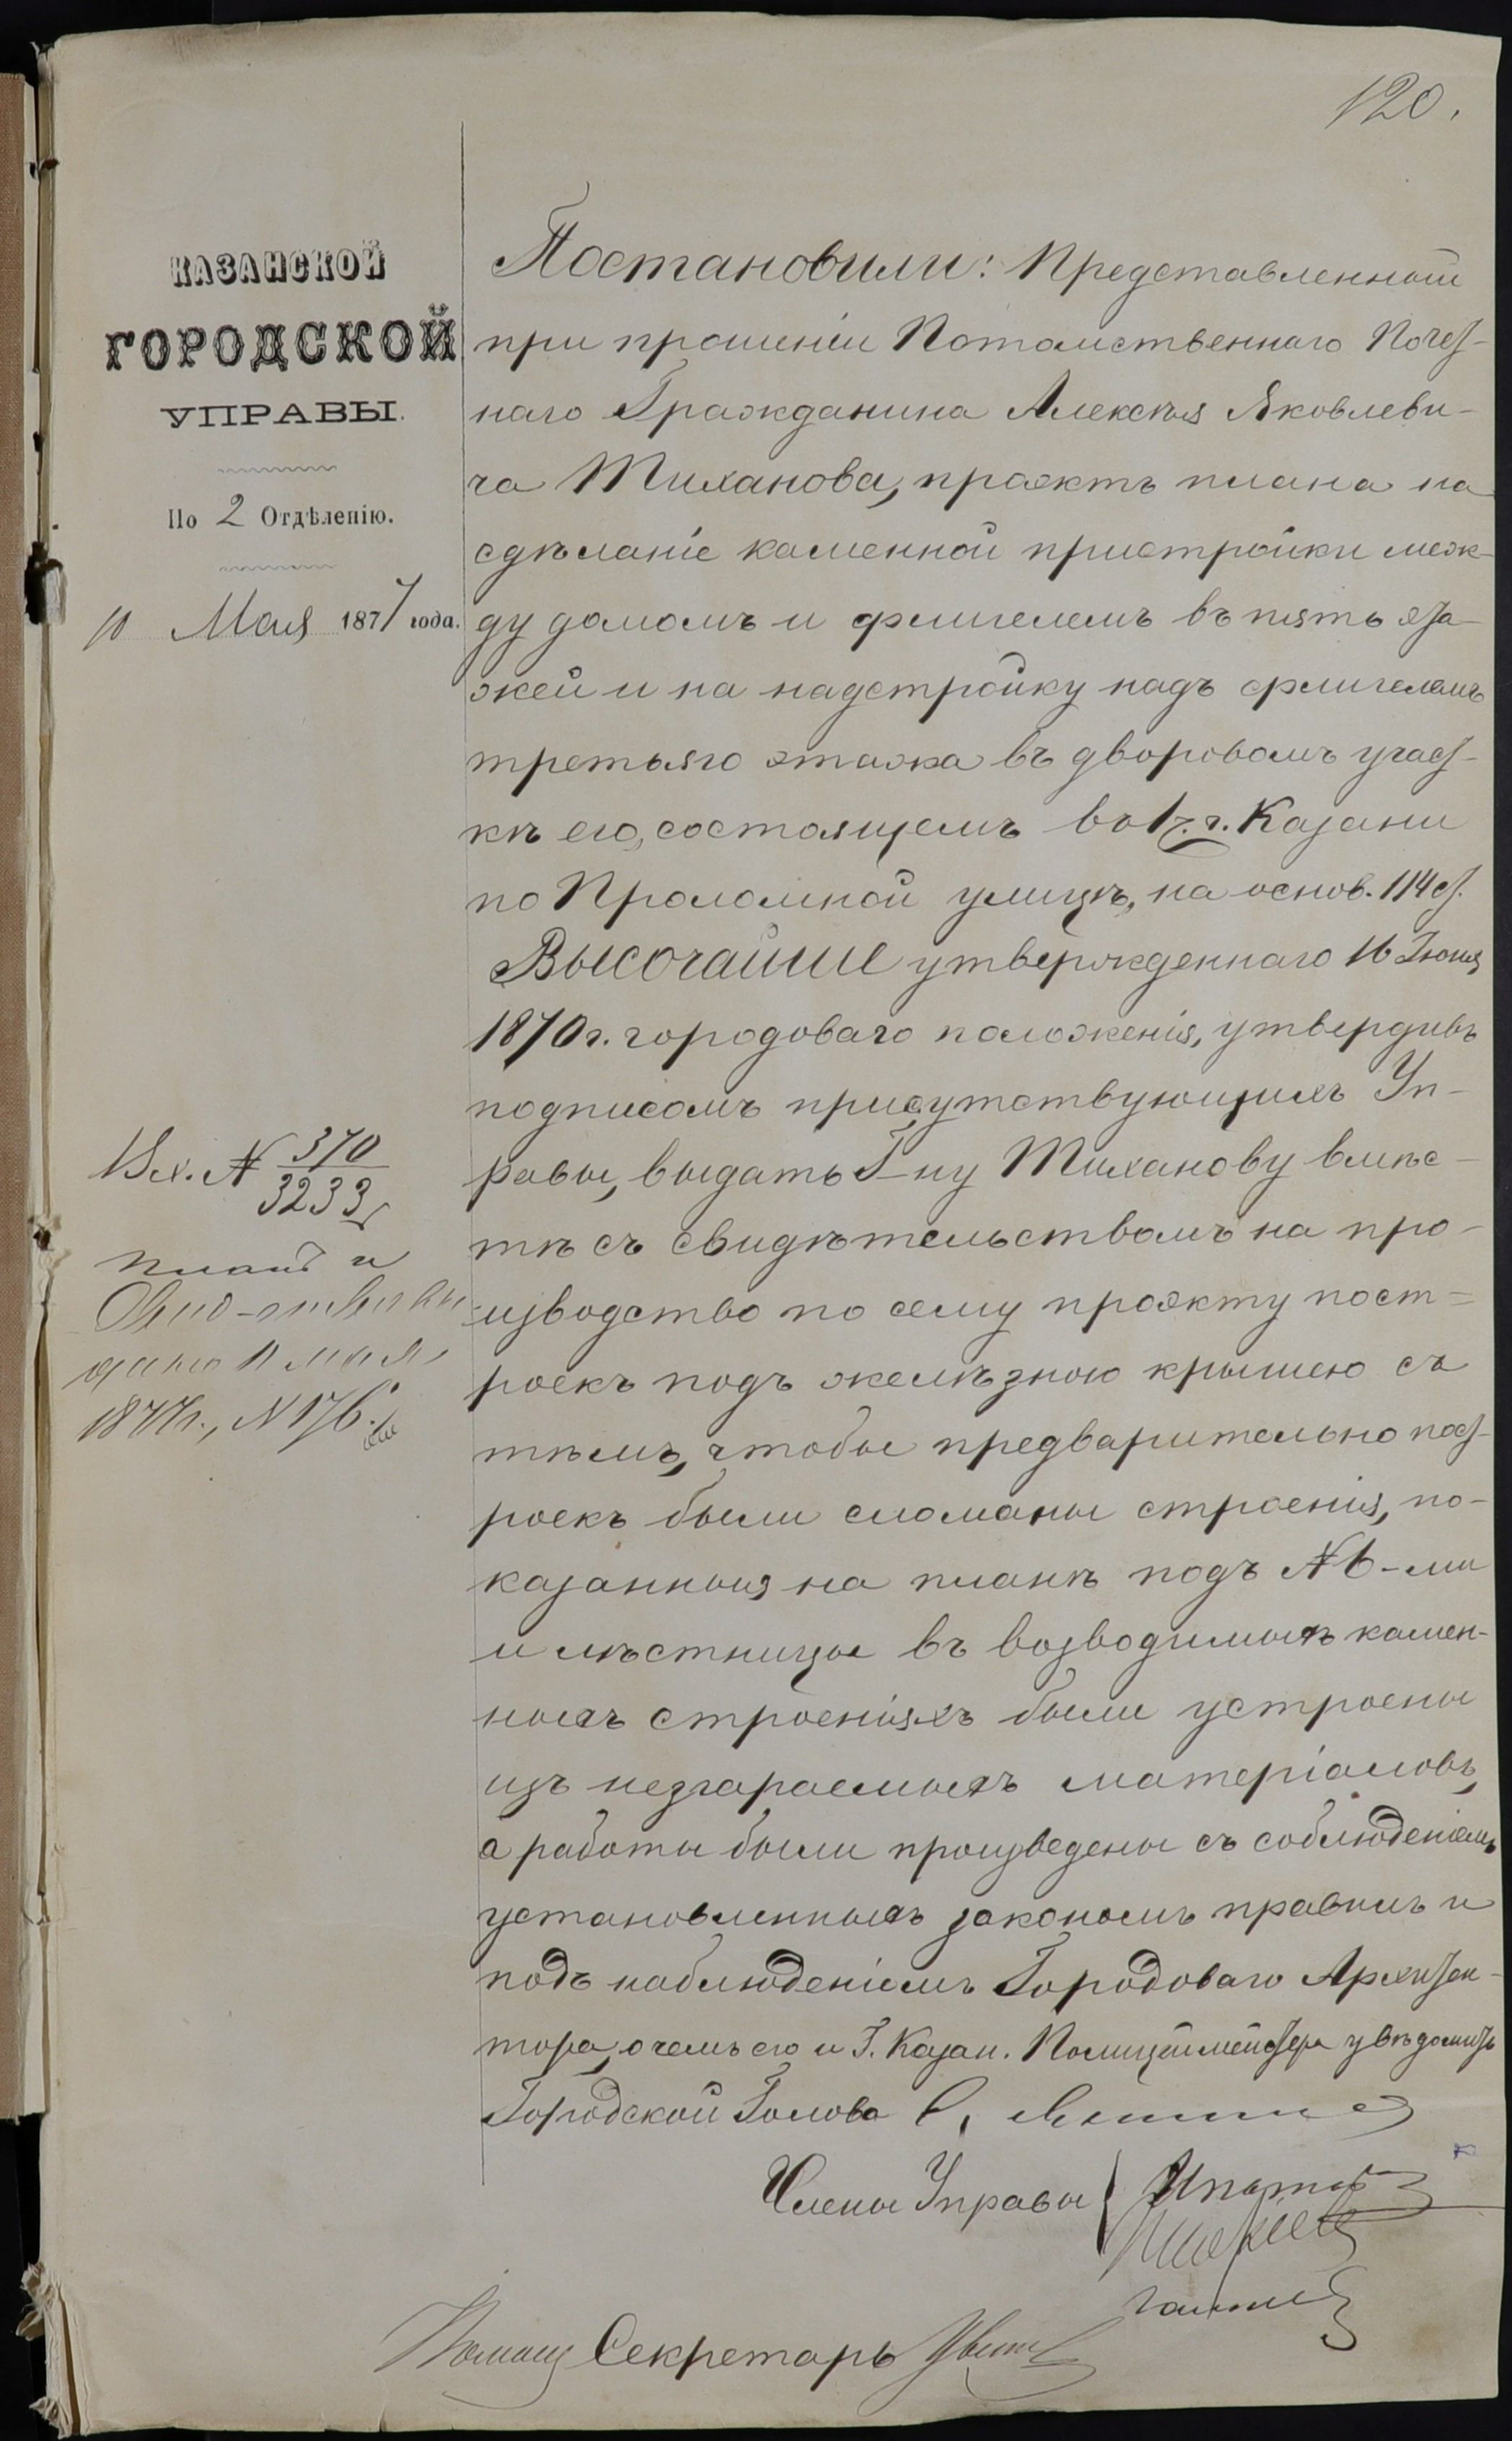 120.
КАЗАНСКОЙ
ГОРОДСКОЙ
УПРАВЫ.
По 2 Отдѣленію.
10 Мая 1877 года.
Постановили: Представленной
при прошеніи Потомственнаго Почет-
наго Гражданина Алексѣя Яковлеви-
ча Тиханова, проэктъ плана на
сдѣланіе каменной пристройки меж-
ду домомъ и флигелемъ въ пять эта-
жей и на надстройку надъ флигелемъ
третьяго этажа въ дворовомъ участ-
кѣ его, состоящемъ во 1 ч. г. Казани
по Проломной улицѣ, на основ. 114 ст.
ВЫСОЧАЙШЕ утвержденнаго 16 Іюня
1870 г. городоваго положенія, утвердивъ
подписомъ присутствующихъ Уп-
равы, выдать Г-ну Тиханову вмѣс-
тѣ съ свидѣтельствомъ на про-
изводство по сему проэкту пост=
роекъ подъ желѣзною крышею съ
тѣмъ, чтобы предварительно пост-
роекъ были сломаны строенія, по-
казанныя на планѣ подъ № 6-ми
и лѣстницы въ возводимыхъ камен-
ныхъ строеніяхъ были устроены
изъ незгараемыхъ матеріаловъ,
а работы были произведены съ соблюденіемъ
установленныхъ закономъ правилъ и
подъ наблюденіемъ Городоваго Архитек-
тора, о чемъ его и Г. Казан. Полицеймейстера увѣдомить
Городской Голова
Члены Управы
Помощ Секретарь
Вх. № 370
3233
Планъ и
Свид-ство вы
дано 11 мая
1877 г., № 176.